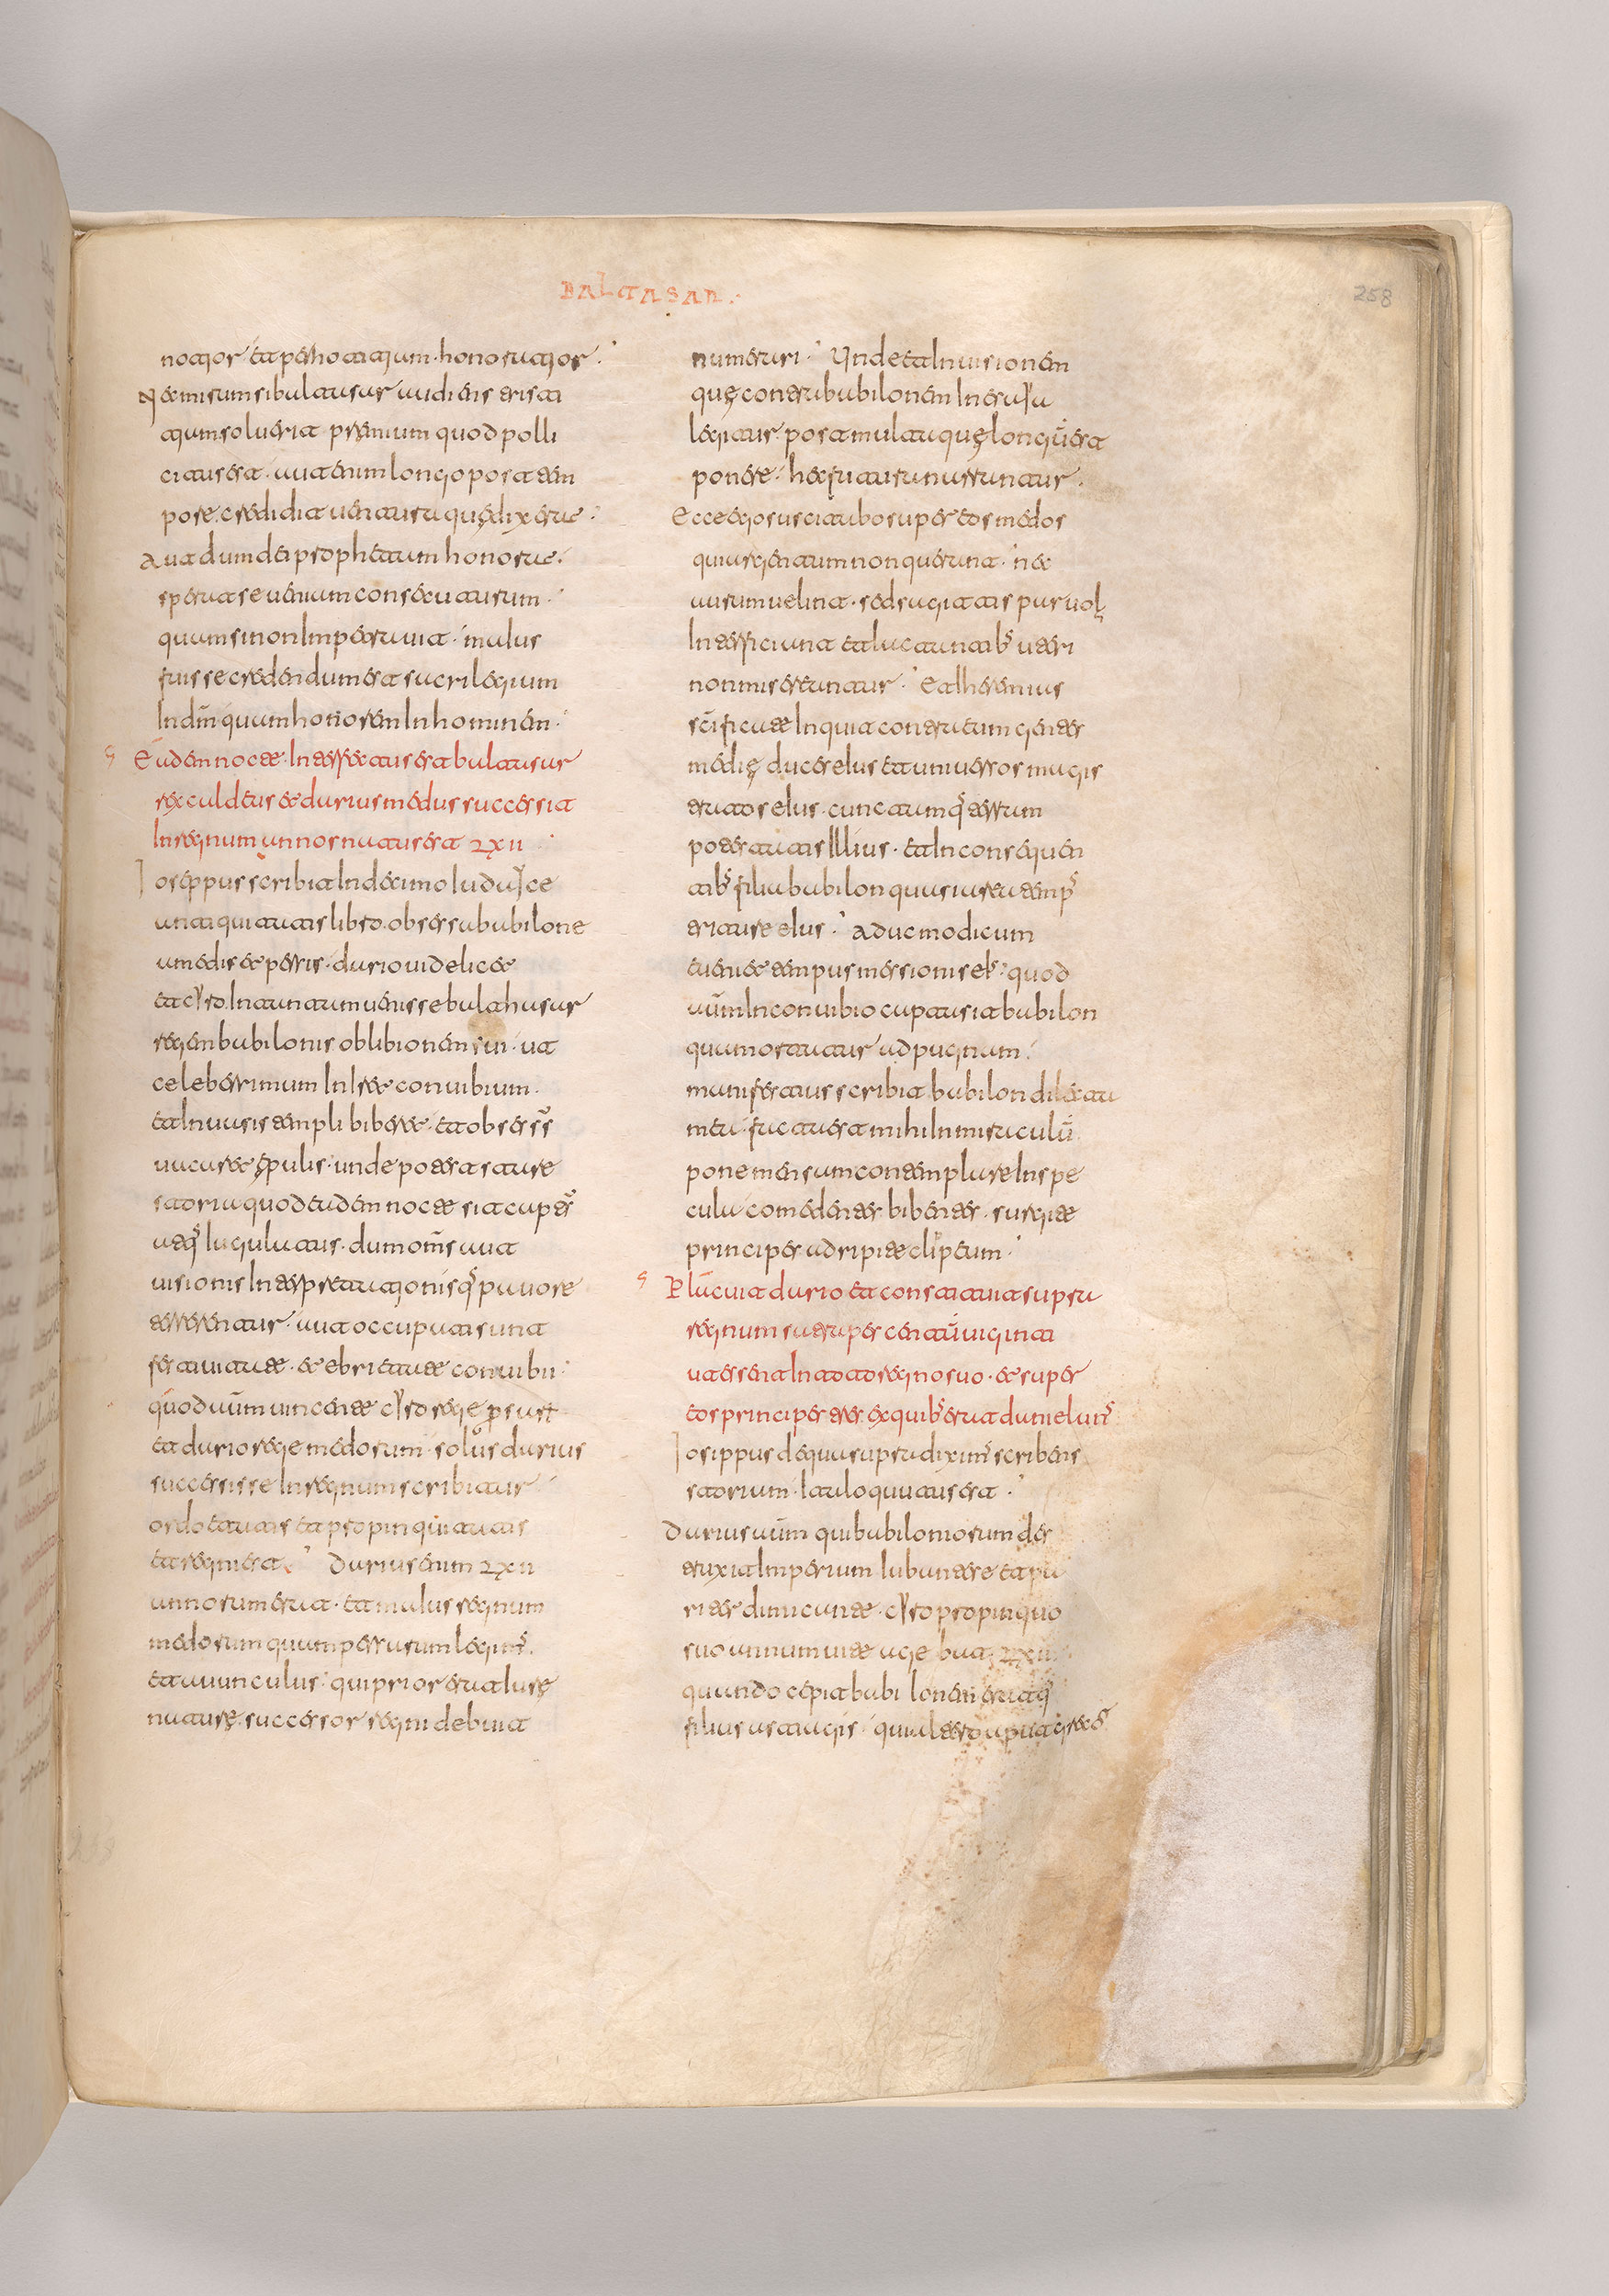 BALTASAR.
notjor et per hoc tium honoratjor.
Nec mirum si baltasar audiens tristi
tjum soluerit premium quod polli
citus est. aut enim longo post tem
pore credidit uentura quę dixerat.
Aut dum dei prophetam honorat.
sperat se ueniam consecuturum.
quam si non Inpetrauit. maius
fuisse credendum est sacrilegium
In dm̄ quam honorem In hominem.
Eadem nocte Interfectus est baltasar
rex caldeus et darius medus successit
In regnum annos natus est LXII
Ioseppus scribit In decimo Iudayce
antiquitatis libro. obsessa babilone
a medis et persis. dario uidelicet
et cyro. In tantum uenisse baltasar
regem babilonis oblibionem sui. ut
celeberrimum Iniret conuibium.
et In uasis templi biberet. et obsess̄
uacaret ępulis. unde potest stare
storia quod eadem nocte sit capt̄
atq̄ Iugulatus. dum oms̄ aut
uisionis Interpretatjonisq̄ pauore
terrerentur. aut occupati sunt
festiuitate. et ebrietate conuibii.
quod aūm uincente cyro rege persarū
et dario rege medorum. solus darius
successisse In regnum scribitur
ordo etatis et propinquitatis
et regni est. Darius enim LXII
annorum erat. et maius regnum
medorum quam persarum legim̄.
et auunculus. qui prior erat Iure
naturę. successor regni debuit
numerari. Unde et In uisionem
quę contra babilonem In esaya
legitur. post multa quę longū est
ponere. hec futura narrantur.
Ecce ego suscitabo super eos medos
qui argentum non querunt. nec
aurum uelint. sed sagittis paruolę
Interficiant et lactantib̄ uteri
non miserentur. Et Iheremias
scificate Inquit contra eum gentes
medię duces eius et uniuersos magis
tratos eius. cunctamq̄ terram
potestatis Illius. et In consequen
tib̄ filia babilon quasi area temp̄
triture eius. Aduc modicum
et ueniet tempus messionis eī. quod
aūm In conuibio capta sit babilon
quum ortatur ad pugnam.
manifestius scribit. babilon dilecta
mea. facta est mihi In miraculū
pone mensam contemplare In spe
cula comedentes bibentes. surgite
principes adripite clipeum.
Placuit dario et constituit supra
regnum satrapes centū uiginti
ut essent In toto regno suo. et super
eos principes tres. ex quib̄ erat daniel un̄
Iosippus de qua supra dixim̄ scribens
storiam. Ita loquutus est.
Darius aūm qui babiloniorum des
truxit Imperium Iubantere et pa
riter dimicante. cyro propinquo
suo annum uite agebat LXII
quando cepit babilonem eratq̄
filius astiagis. qui altero aput grecos
258